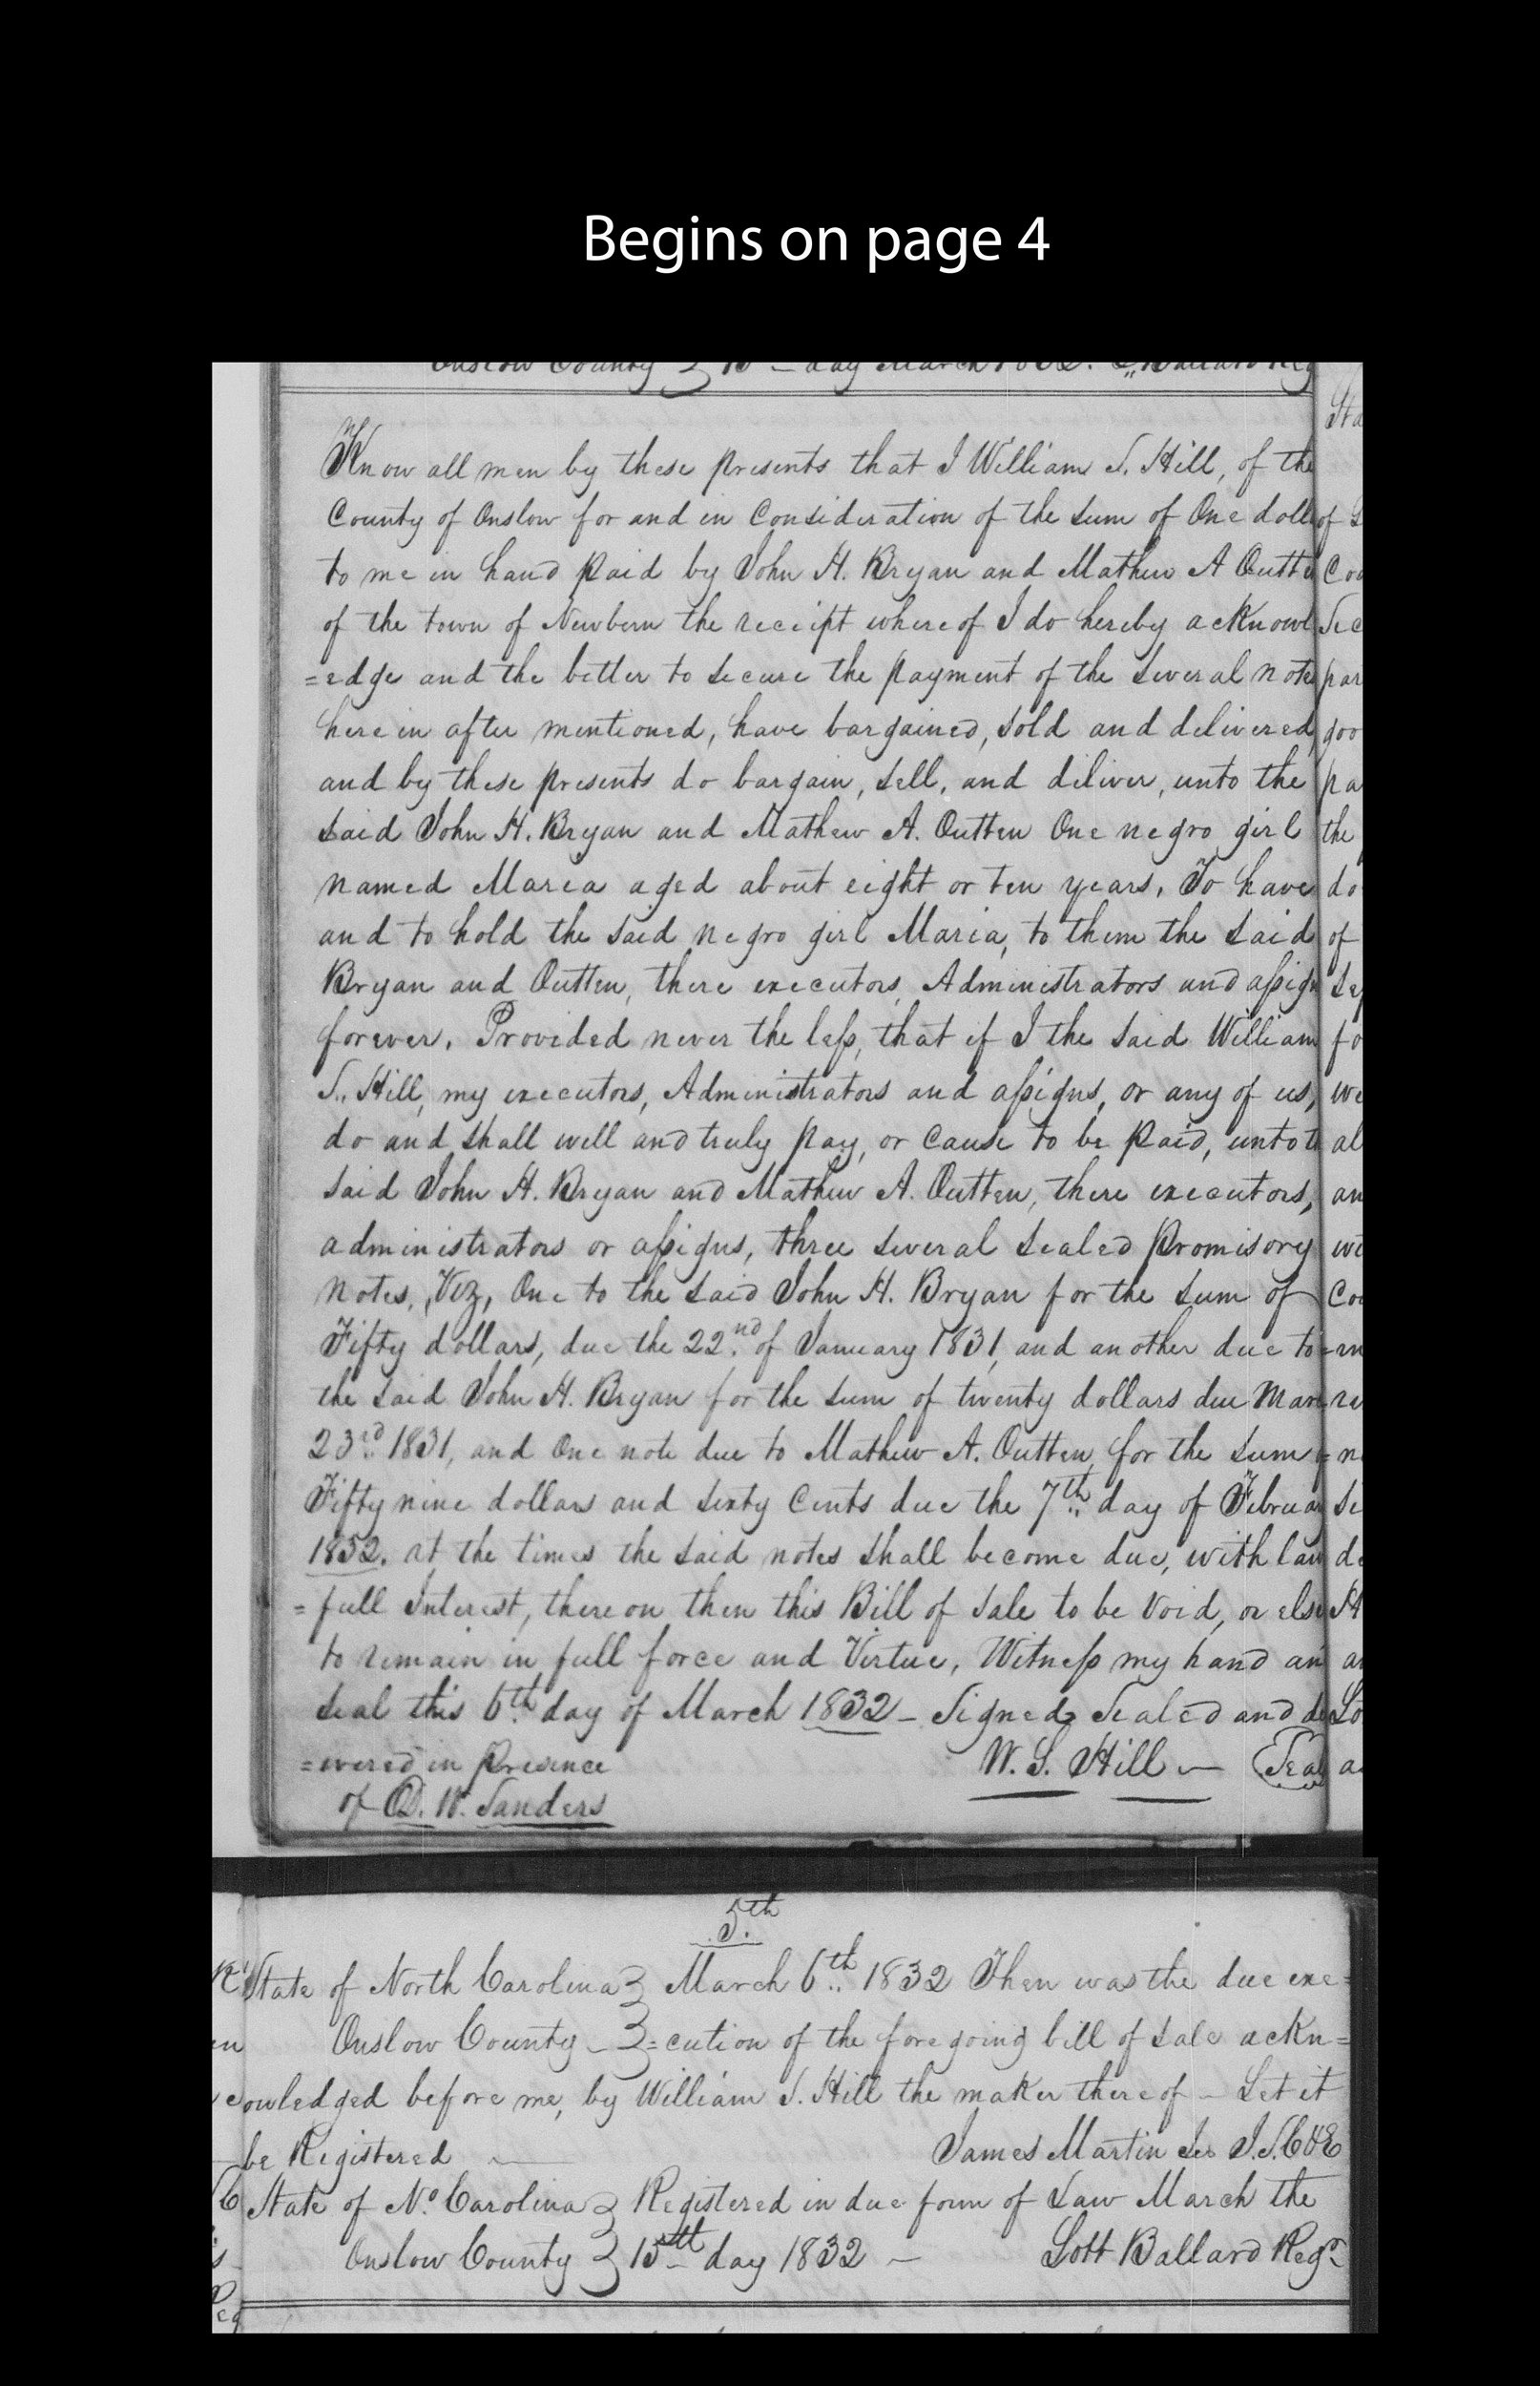 Begins on page 4
Onslow County 15 - day March 1832. L, Ballard Reg
Know all men by these presents that I William S. Hill, of the
County of Onslow for and in Consideration of the sum of One doll
to me in hand paid by John H. Bryan and Mathew A Outte
of the town of Newbern the receipt whereof I do hereby acknowl
=edge and the better to secure the payment of the several note
here in after mentioned, have bargained, sold and delivered,
and by these presents do bargain, sell, and deliver, unto the
said John H. Bryan and Mathew A. Outten One negro girl
named Maria aged about eight or ten years, To have
and to hold the said negro girl Maria, to them the said
Bryan and Outten, there executors, Administrators and assign
forever. Provided never the less, that if I the said William
S. Hill, my executors, Administrators and assigns, or any of us,
do and shall well and truly pay, or cause to be paid, unto t
said John H. Bryan and Mathew A. Outten, there executors,
administrators or assigns, three several sealed Promisory
notes, Viz, One to the said John H. Bryan for the sum of
Fifty dollars, due the 22nd of January 1831, and another due to
the said John H. Bryan for the sum of twenty dollars due Mar
23rd 1831, and One note due to Mathew A. Outten, for the sum
Fifty nine dollars and sixty Cents due the 7th day of Februa
1832. at the times the said notes shall become due, with law
=full Interest, there on then this Bill of Sale to be Void, or else
to remain in full force and Virtue, Witness my hand an
seal this 6th day of March 1832 - Signed Sealed and de
=ivered in Presence W. S. Hill — Seal
of D. W. Sanders
5th
State of North Carolina } March 6th 1832 Then was the due exe=
Onslow County - }=cution of the foregoing bill of sale ackn=
owledged before me, by William S. Hill the maker there of - Let it
be Registered — James Martin
State of No. Carolina } Registered in due form of Law March the
Onslow County } 15th day 1832 — Lott Ballard Regr